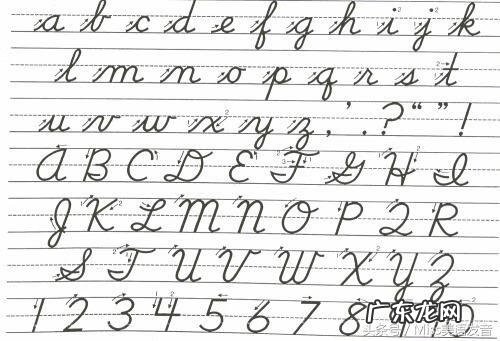 a b c d e f g h i j k
l m n o p q r s t
u v w x y z , ' . ? “ ” !
A B C D E F G H I
J K L M N O P Q R
S T U V W X Y Z
1 2 3 4 5 6 7 8
广东龙网